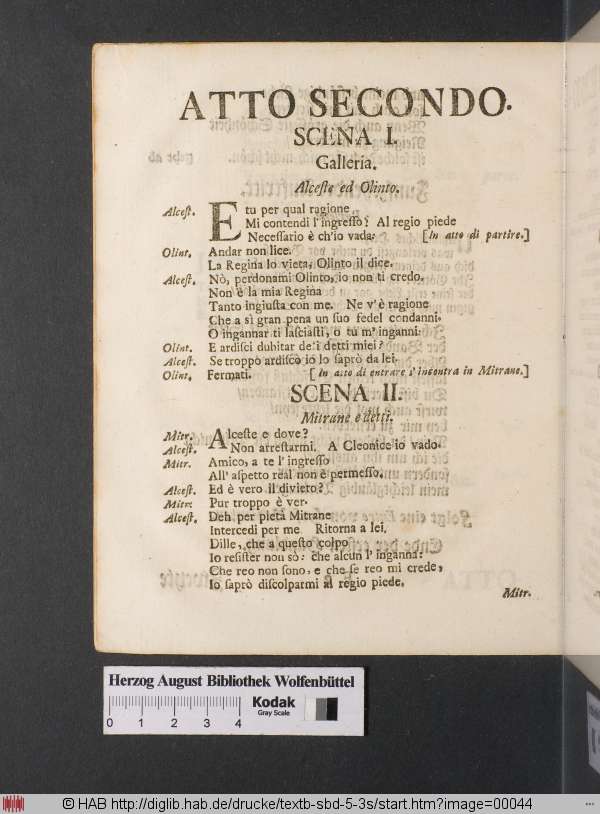 ATTO SECONDO.
SCENA I.
Galleria.
Alceste ed Olinto.
Alcest. E tu per qual ragione
Mi contendi l'ingresso? Al regio piede
Necessario è ch'io vada. [In atto di partire.]
Olint. Andar non lice.
La Regina lo vieta, Olinto il dice.
Alcest. Nò, perdonami Olinto, io non ti credo.
Non è la mia Regina
Tanto ingiusta con me. Ne v'è ragione
Che a si gran pena un suo fedel condanni.
O ingannar ti lasciasti, o tu m'inganni.
Olint. E ardisci dubitar de'i detti miei?
Alcest. Se troppo ardisco io lo saprò da lei.
Olint. Fermati. [In atto di entrare s'incontra in Mitrane.]
SCENA II.
Mitrane e detti.
Mitr. Alceste e dove?
Alcest. Non arrestarmi. A Cleonice io vado.
Mitr. Amico, a te l'ingresso
All' aspetto real non è permesso.
Alcest. Ed è vero il divieto?
Mitr. Pur troppo è ver.
Alcest. Deh per pietà Mitrane
Intercedi per me Ritorna a lei,
Dille, che a questo colpo
Io resister non sò: che alcun l' inganna:
Che reo non sono, e che se reo mi crede,
Io saprò discolparmi al regio piede.
Mitr.
Herzog August Bibliothek Wolfenbüttel
0 1 2 3 4
Kodak
Gray Scale
© HAB http://diglib.hab.de/drucke/textb-sbd-5-3s/start.htm?image=00044